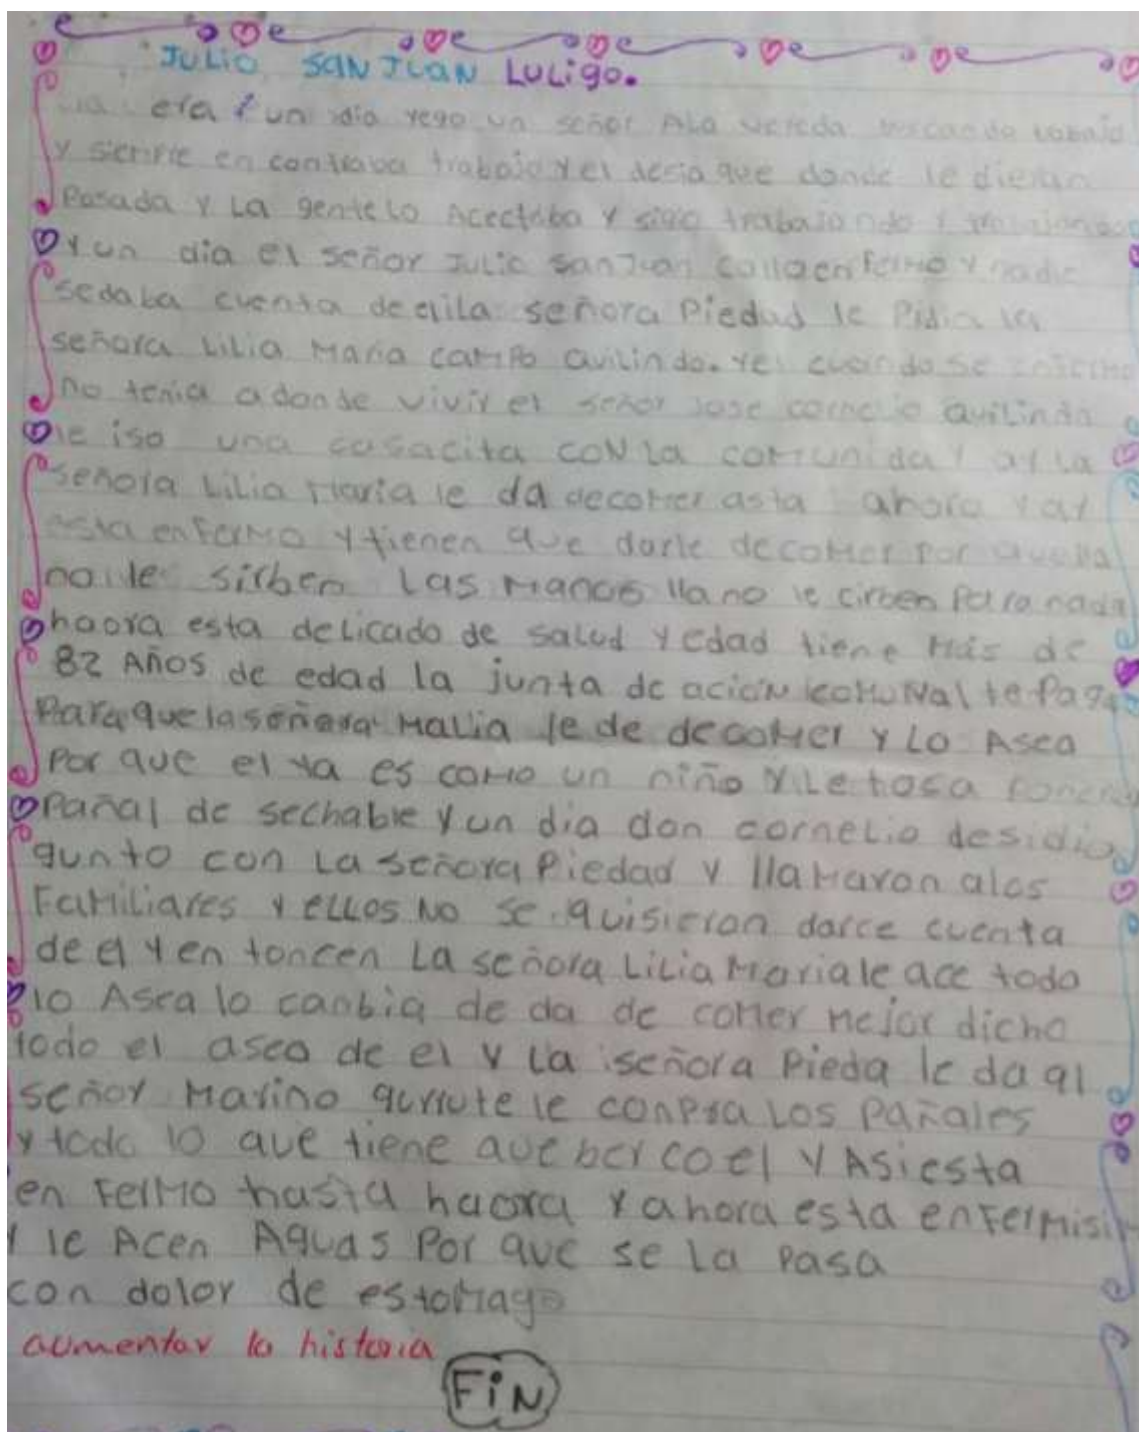 JULIO SANJUAN LULigo.
era un dia yego un señor Ala vereda buscando trabajo
y siempre en contraba trabajo y el desia que donde le dieran
Posada y La gente lo Acectaba y sigio trabajando y trabajando
y un dia el señor Julio SanJuan callo enfermo y nadie
sedaba cuenta de el la señora Piedad le Pidio la
señora Lilia Maria campo avilindo. y el cuando se enfermo
no tenia adonde vivir el señor Jose cornelio avilindo
le iso una casacita coN La comunida y ay La
señora Lilia Maria le da decomer asta ahora y ay
esta enfermo y tienen que darle decomer por que lla
no le sirben Las manos lla no le cirben Para nada
haora esta delicado de salud y edad tiene mas de
82 Años de edad la junta de acioN coMuNal le Paga
Para que laseñora Malia le de decomer y Lo Asea
Por que el ya es como un niño y Le tosa ponerle
Pañal de sechable y un dia don cornelio desidio
gunto con La señora Piedad y llamaron alos
Familiares y eLLos No se quisieron darce cuenta
de el y en toncen La señora Lilia Maria le ace todo
lo Asea lo canbia de da de comer mejor dicho
todo el aseo de el y La señora Pieda le da al
señor Marino gurrute le conpra Los Pañales
y todo lo que tiene que ber co el y Asi esta
en Fermo hasta haora y ahora esta enfermisi
y le Acen Aguas Por que se La Pasa
con dolor de estomago
aumentar la historia
FiN